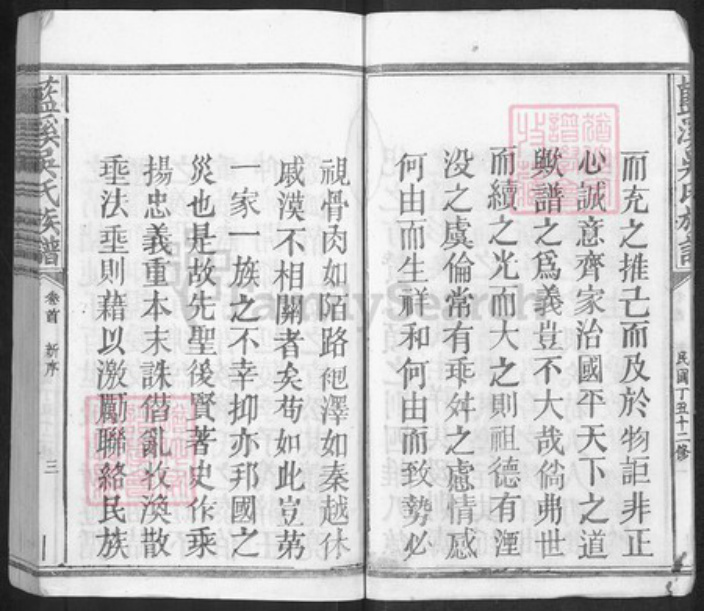 藍溪吳氏族譜
民國丁丑十二修
而充之推己而及於物詎非正
心誠意齊家治國平天下之道
歟譜之為義豈不大哉倘弗世
而續之光而大之則祖德有湮
没之虞倫常有乖舛之慮情感
何由而生祥和何由而致勢必
視骨肉如陌路袍澤如秦越休
戚漠不相關者矣苟如此豈第
一家一族之不幸抑亦邦國之
災也是故先聖後賢著史作乘
揚忠義重本末誅僭亂收渙散
垂法垂則藉以激勵聯絡民族
藍溪吳氏族譜
卷首 新序
三
FamilySearch